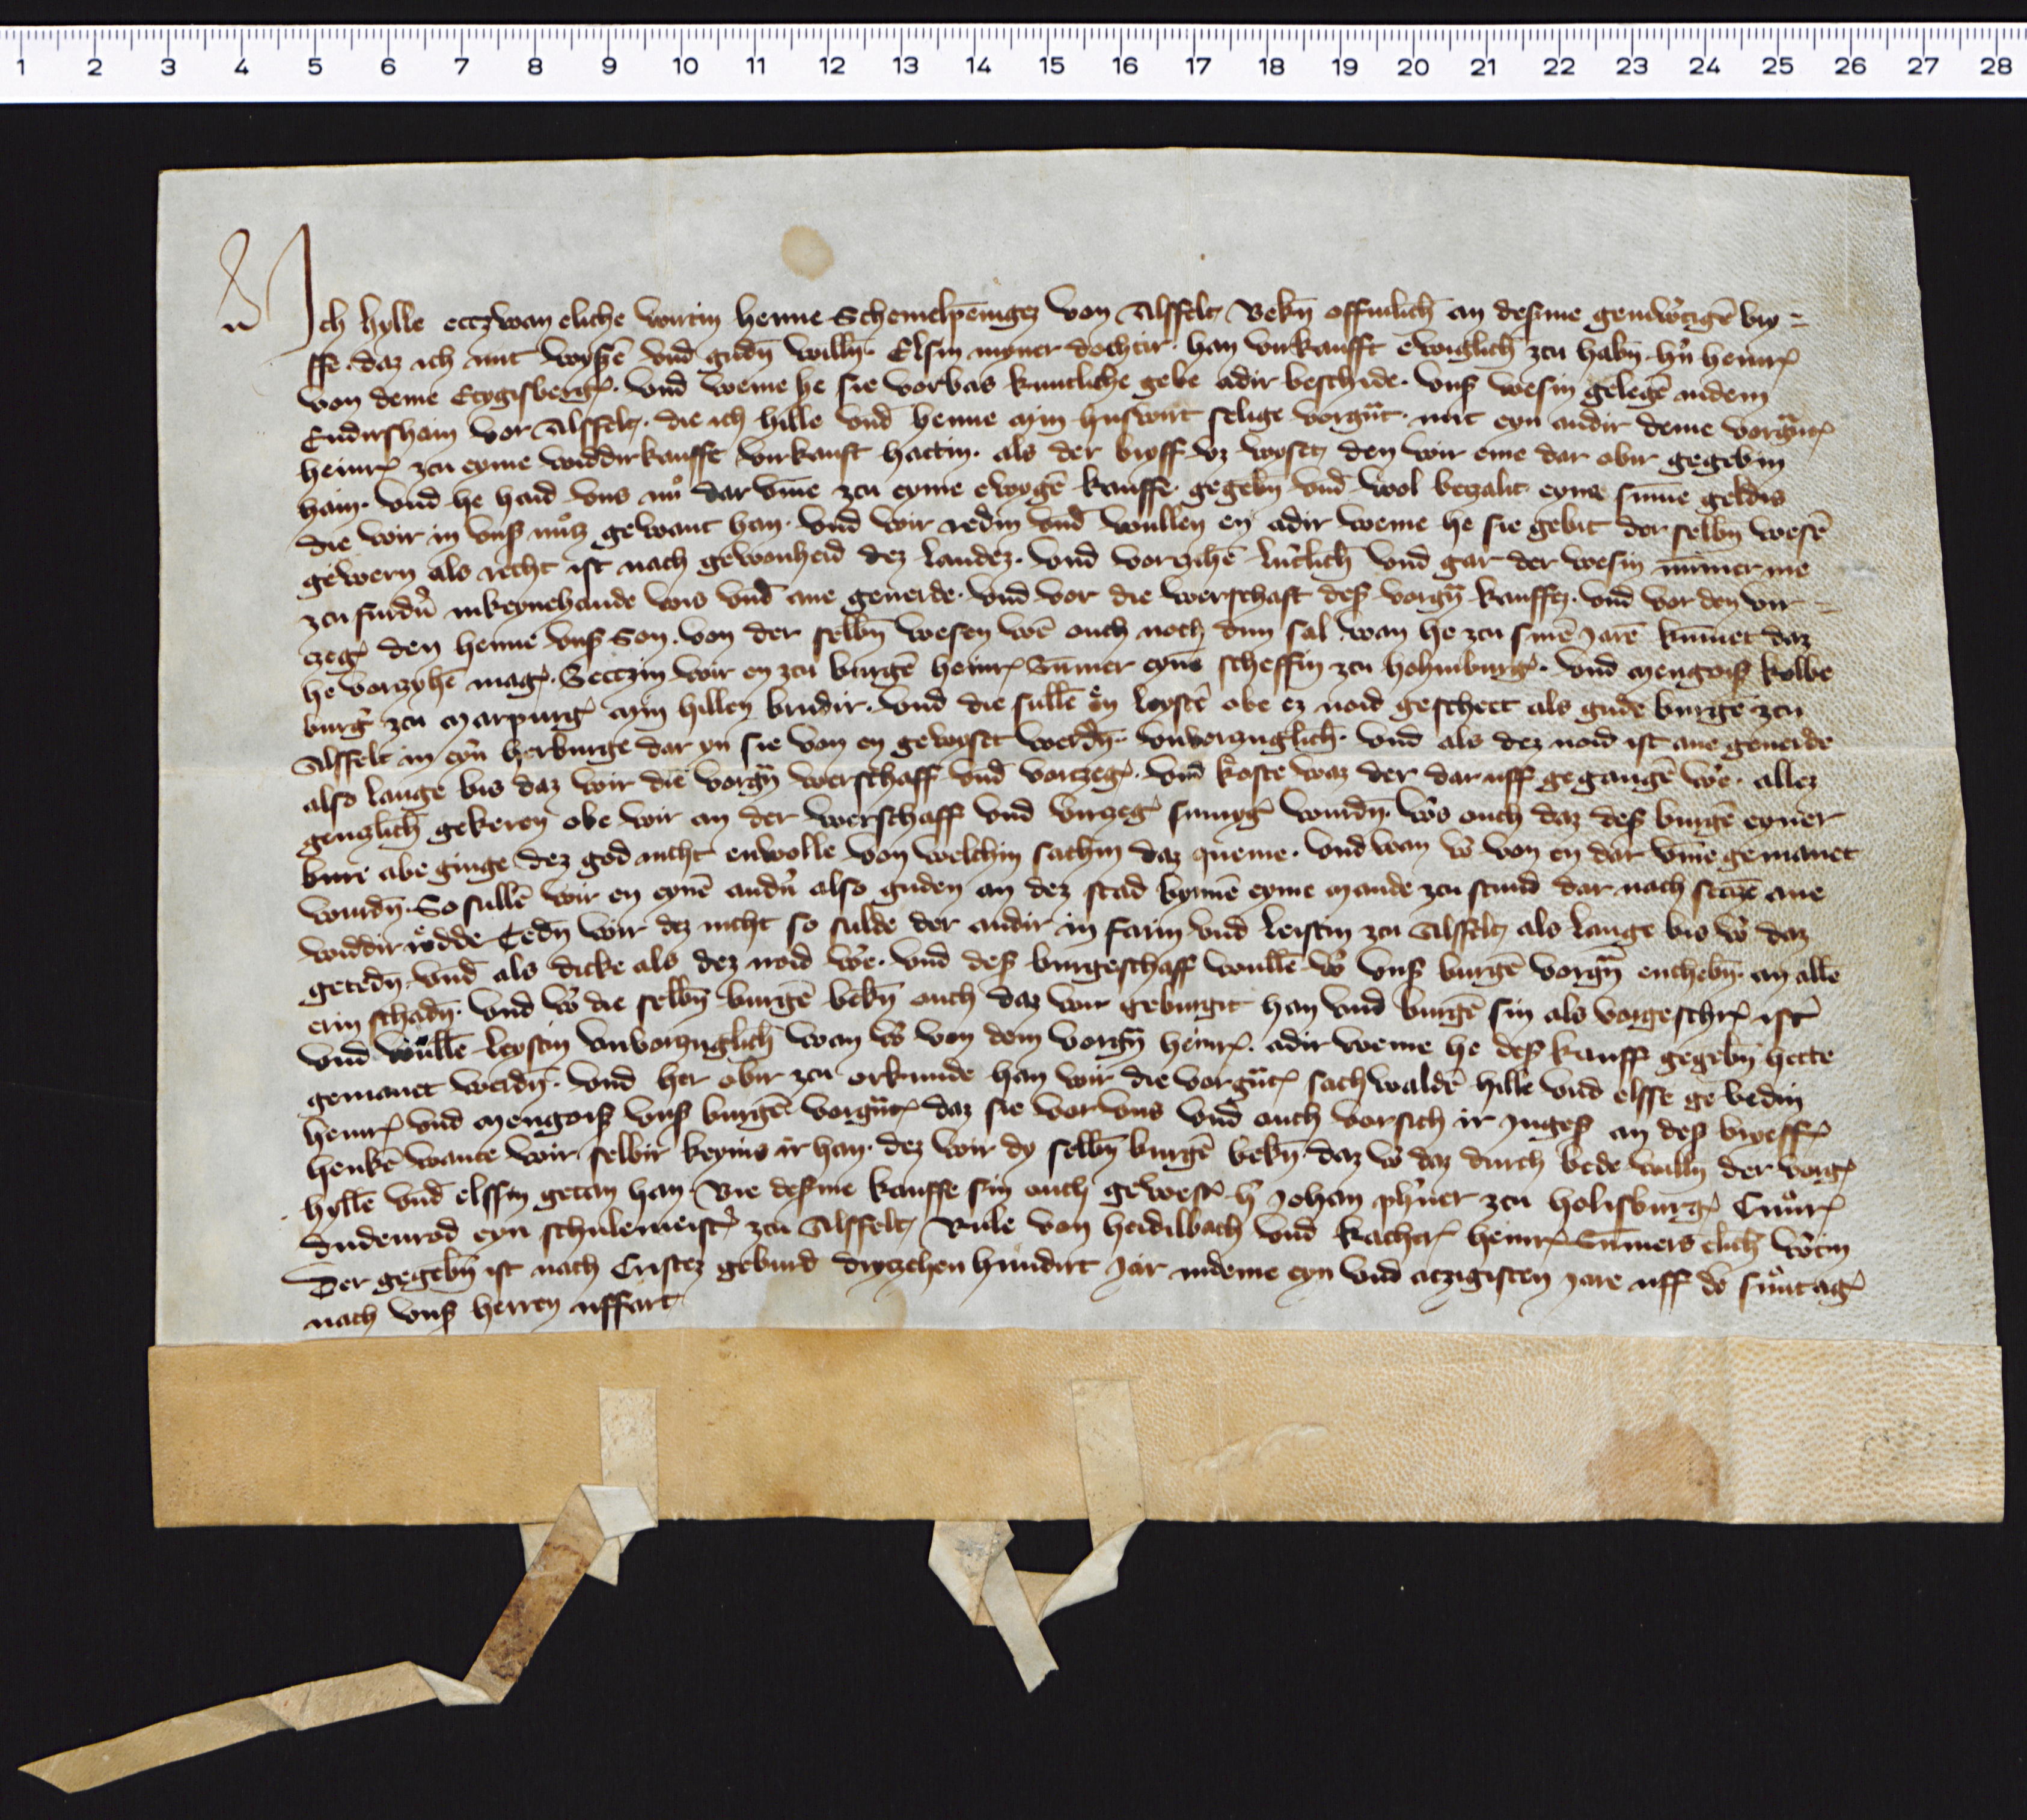 1 2 3 4 5 6 7 8 9 10 11 12 13 14 15 16 17 18 19 20 21 22 23 24 25 26 27 28
Ich hylle ecczwan eliche wirtin henne Schemelpēnigz von Alsfelt Bekēn offinlich an desme geinwˀtigē bry=
ffe. daz ich mit wyssē vnd gudn̄ willn̄. Elsin myner dochtir. han virkaufft ewiglich zcu habn̄ hˀn heinrꝭ
von deme Eeygisbergꝭ. vnd weme he sie vorbas kuntliche gebe adir beschide. vnß wesin gelegē indem
Eudirshain vor Alsfelt. die ich hille vnd henne myn huswirt selige vorgn̄t. mit eyn andir deme vorgn̄tꝭ
heinrꝭ zcu eyme widdirkauffe virkauft hattin. als der bryff vz wyset den wir eme dar obir gegebin
hain. vnd he haid vns nuͦ dar vm̄e zcu eyme ewygē kauffe. gegebn̄ vnd wol bezalit eyne sum̄e geldis
die wir in vnß nuͦtz gewant han. vnd wir redin vnd wullen en adir weme he sie gebit der selbn̄ wesē
gewern als recht ist nach gewonheid dez landez. vnd vorzihē lutˀlich vnd gar der wesin nūmer me
zcu furdˀn inkeynehande wis vnd ane geuerde. vnd vor die werschaft deß vorgn̄ kauffz. vnd vor den vir=
czegꝭ den henne vnß son. von der selbn̄ wesen wē ouch noch dun sal wan he zcu sinē jarē kūmet daz
he vorzyhē magꝭ. Setczin wir en zcu burgē heinrꝭ Sūmer eynē scheffin zcu hohinburgꝭ. vnd Mengoß kolbe
burgˀ zcu Marpurgꝭ myn hillen brudir. vnd die sullē en leystē obe ez noid geschect als gude burgē zcu
Alsfelt in eynˀ herburge dar yn sie von en gewyset werdn̄. vnverzuglich. vnd als dez noid ist ane geuerde
also lange bis daz wir die vorgn̄ werschaff vnd vorzegꝭ. vnd koste waz der dar uff gegangē wēˀ. allez
genzlich gekeren obe wir an der werschaff vnd virzegꝭ sumygꝭ wurdn̄. wˀs ouch daz deß burgē eyner
burē abe ginge dez god nicht enwolle von welchin sachin daz queme. vnd wan wˀ von en dar vm̄e gemanet
wurdn̄. So sullē wir en eynē andˀn also guden an dez stad bynnē eyme Mande zcu stund dar nach seczē ane
widdir redde Tedn̄ wir dez nicht so sulde der andir in farin vnd leistin zcu Alsfelt als lange bis wˀ daz
getedn̄. vnd als dicke als dez noid wˀe. vnd deß burgeschaff wullē wˀ vnß burgē vorgn̄ enthebn̄. an allē
erin schadn̄. vnd wˀ die selbn̄ burgē bekn̄ ouch daz wir geburgit han vnd burgē sin als vorgeschrꝭ ist
vnd wullē leystin vnvorzuglich wan wˀ von dem vorgn̄ heinrꝭ. adir weme he deß kauff gegebn̄ hette
gemanet werdn̄. vnd her obir zcu orkunde han wir die vorgn̄tꝭ sachwaldē hille vnd elsse gebedin
heinrꝭ vnd Mengoiß vnß burgē vorgn̄tꝭ daz sie vor vns vnd ouch vor sich ir Ingeß an deß bryeffꝭ
henkē wante wir selbir keyins ir han. dez wir dy selbn̄ burgē bekn̄. daz wˀ daz durch bede willn̄ der vorgꝭ
hyllē vnd elssin getan han. Bie desme kauffe sin ouch gewestꝭ hˀ Johan phˀner zcu holisburgꝭ Cunrꝭ
Dudenrod eyn schulemeistˀ zcu Alsfelt Rule von heidilbach vnd kachirꝭ heinrꝭ Sūmers elich wˀtin
Der gegebn̄ ist nach Cristez geburd dryczehen hundirt jar indeme eyn vnd atzigisten jare uff dē suntagꝭ
nach vnß herren uffart